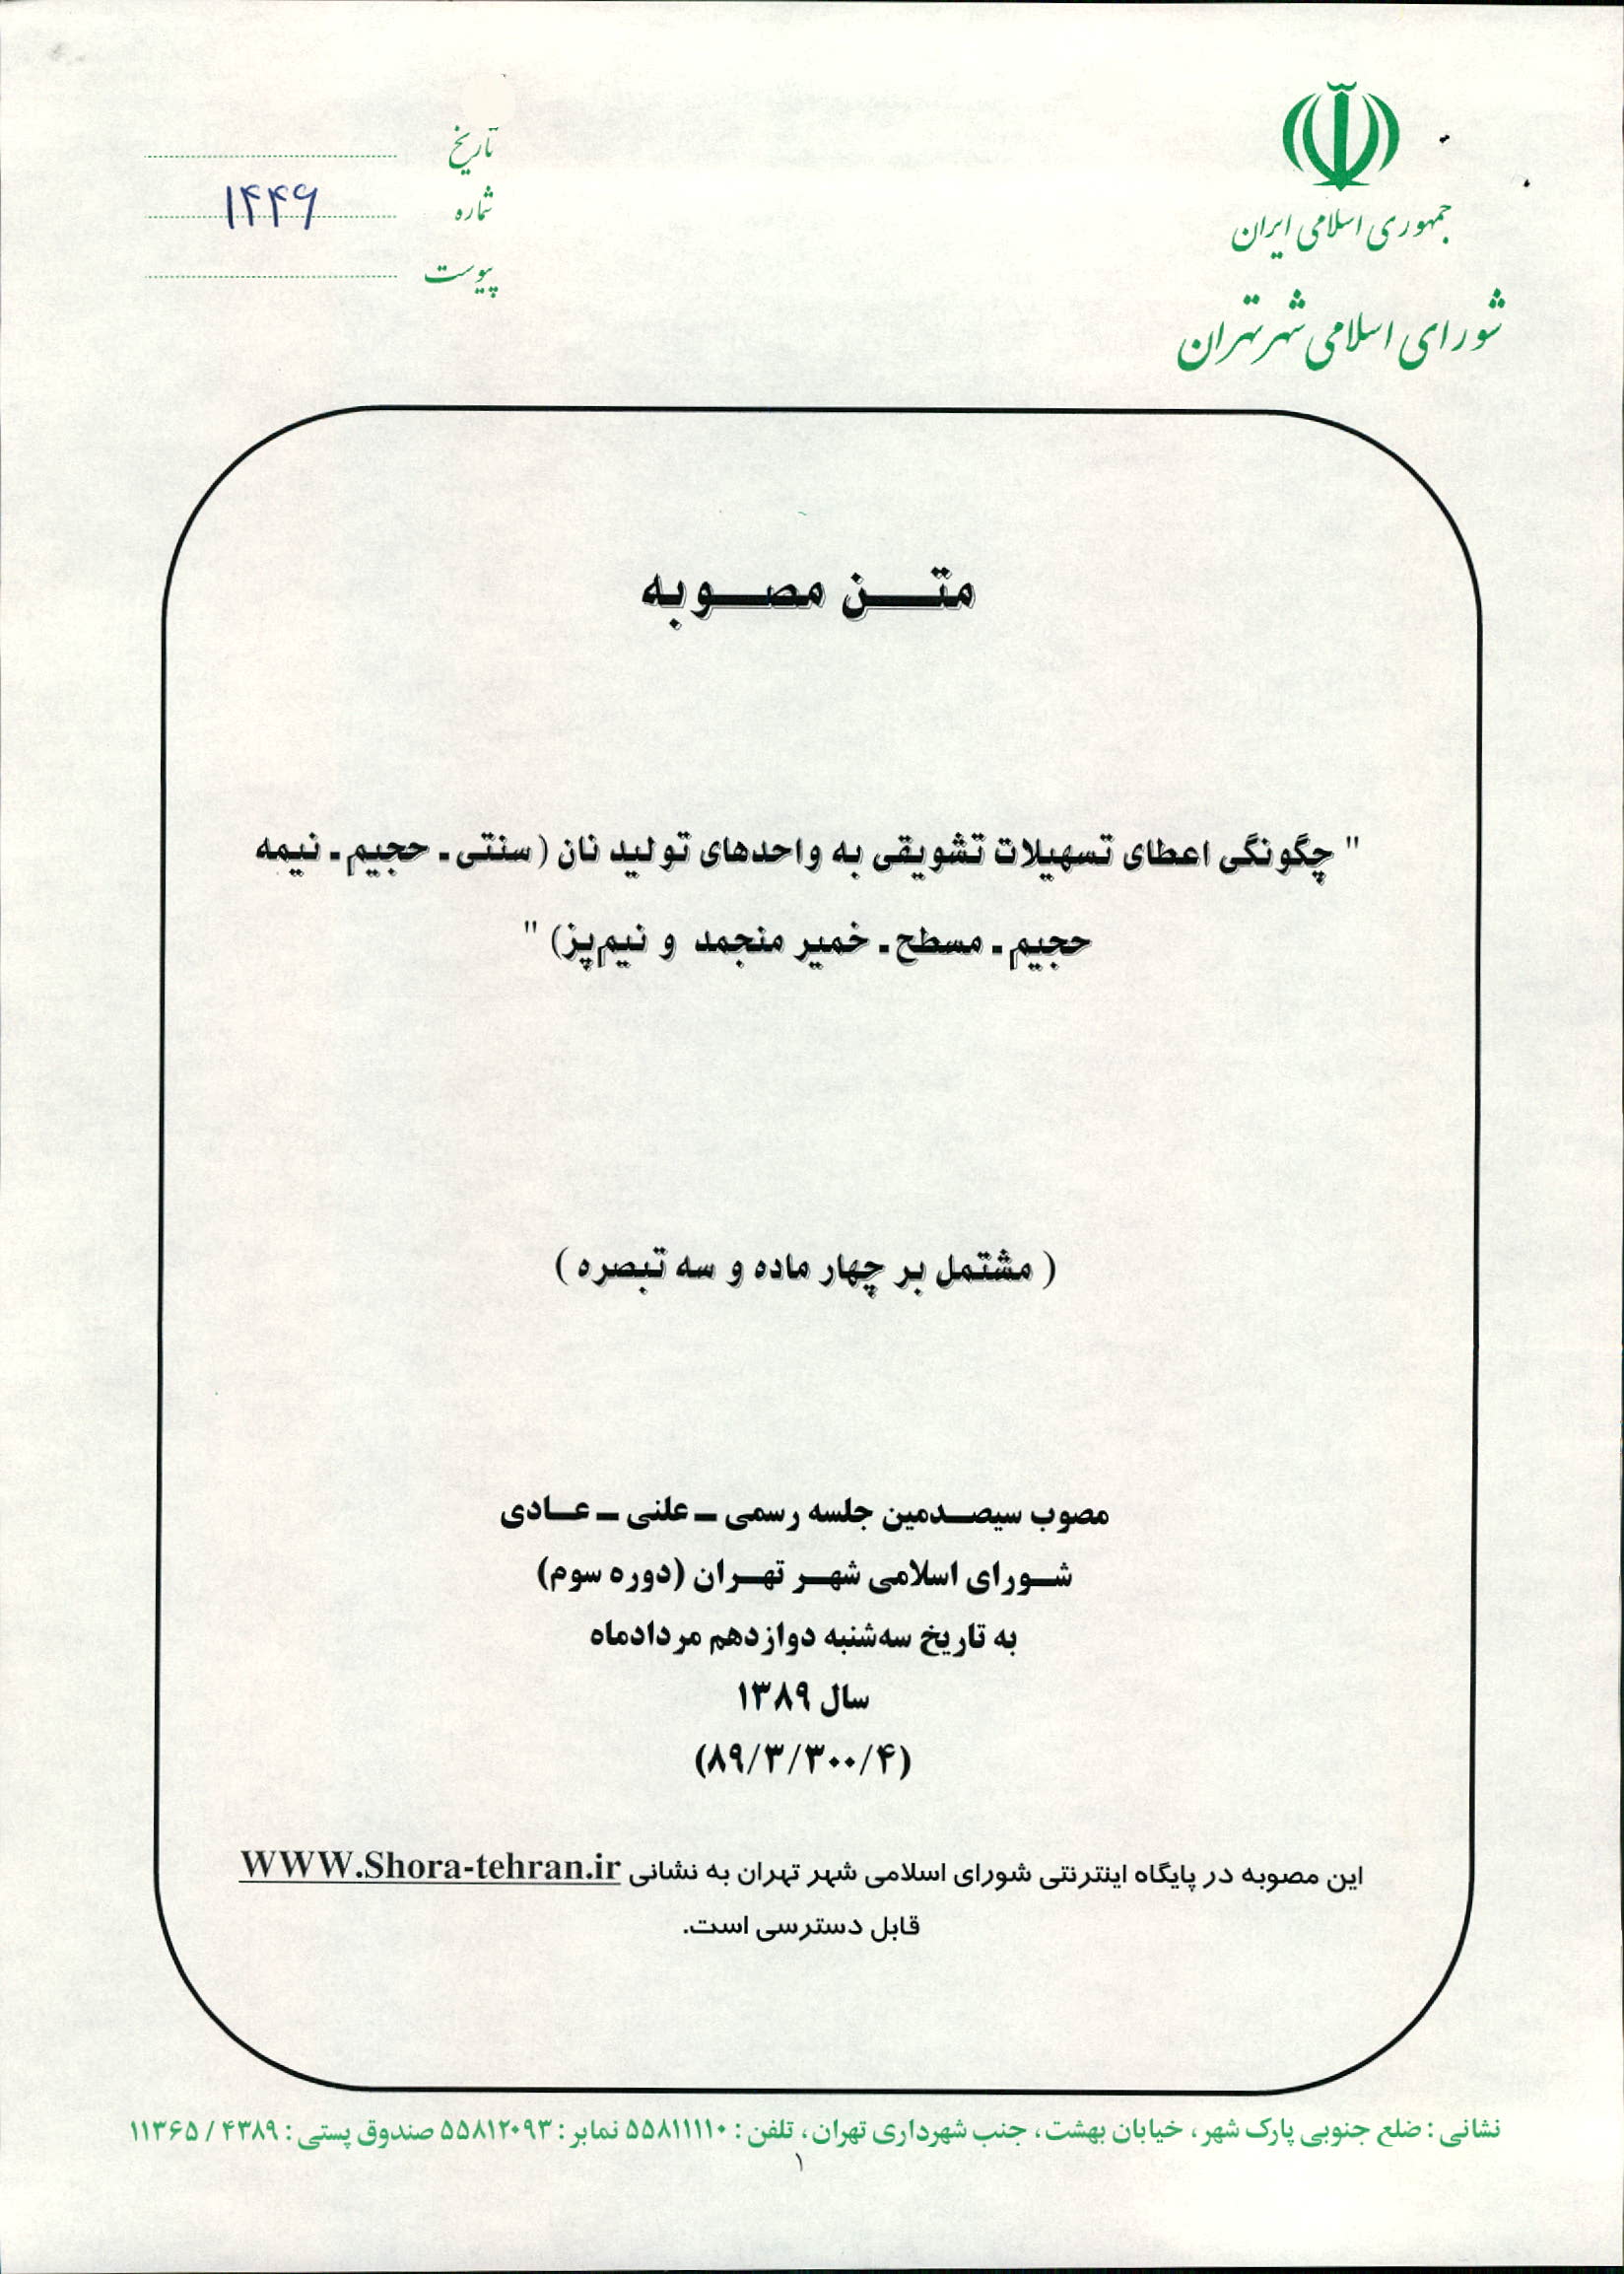 جمهوری اسلامی ایران
شورای اسلامی شهر تهران
تاریخ
شماره ۱۴۴۶
پیوست
متن مصوبه
" چگونگی اعطای تسهیلات تشویقی به واحدهای تولید نان ( سنتی ـ حجیم ـ نیمه
حجیم ـ مسطح ـ خمیر منجمد و نیم‌پز) "
( مشتمل بر چهار ماده و سه تبصره )
مصوب سیصدمین جلسه رسمی ـ علنی ـ عادی
شورای اسلامی شهر تهران (دوره سوم)
به تاریخ سه‌شنبه دوازدهم مردادماه
سال ۱۳۸۹
(۸۹/۳/۳۰۰/۴)
این مصوبه در پایگاه اینترنتی شورای اسلامی شهر تهران به نشانی WWW.Shora-tehran.ir
قابل دسترسی است.
نشانی : ضلع جنوبی پارک شهر ، خیابان بهشت ، جنب شهرداری تهران ، تلفن : ۵۵۸۱۱۱۱۰ نمابر : ۵۵۸۱۲۰۹۳ صندوق پستی : ۴۳۸۹ / ۱۱۳۶۵
۱